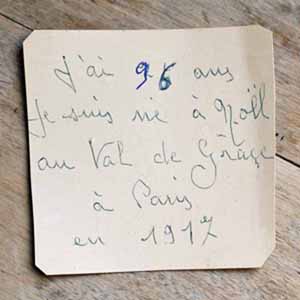 J'ai 96 ans
Je suis né à Noël
au Val de Grâce
à Paris
en 1917